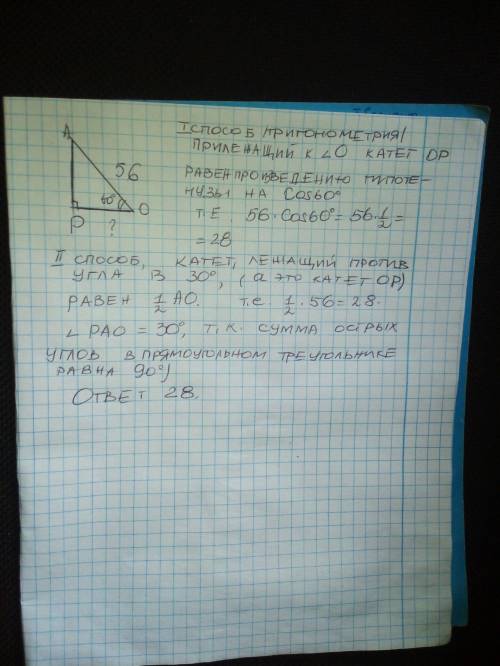 I СПОСОБ /ТРИГОНОМЕТРИЯ/
ПРИЛЕЖАЩИЙ К ∠O КАТЕТ OP
РАВЕН ПРОИЗВЕДЕНИЮ ГИПОТЕ-
НУЗЫ НА Cos60°
Т.Е. 56·Cos60° = 56·1/2 =
= 28
A
56
60°
O
P
?
II СПОСОБ, КАТЕТ, ЛЕЖАЩИЙ ПРОТИВ
УГЛА В 30°, (а ЭТО КАТЕТ OP)
РАВЕН 1/2 AO. т.е 1/2 · 56 = 28.
∠ PAO = 30°, Т.К. СУММА ОСТРЫХ
УГЛОВ В ПРЯМОУГОЛЬНОМ ТРЕУГОЛЬНИКЕ
РАВНА 90°)
ОТВЕТ 28.